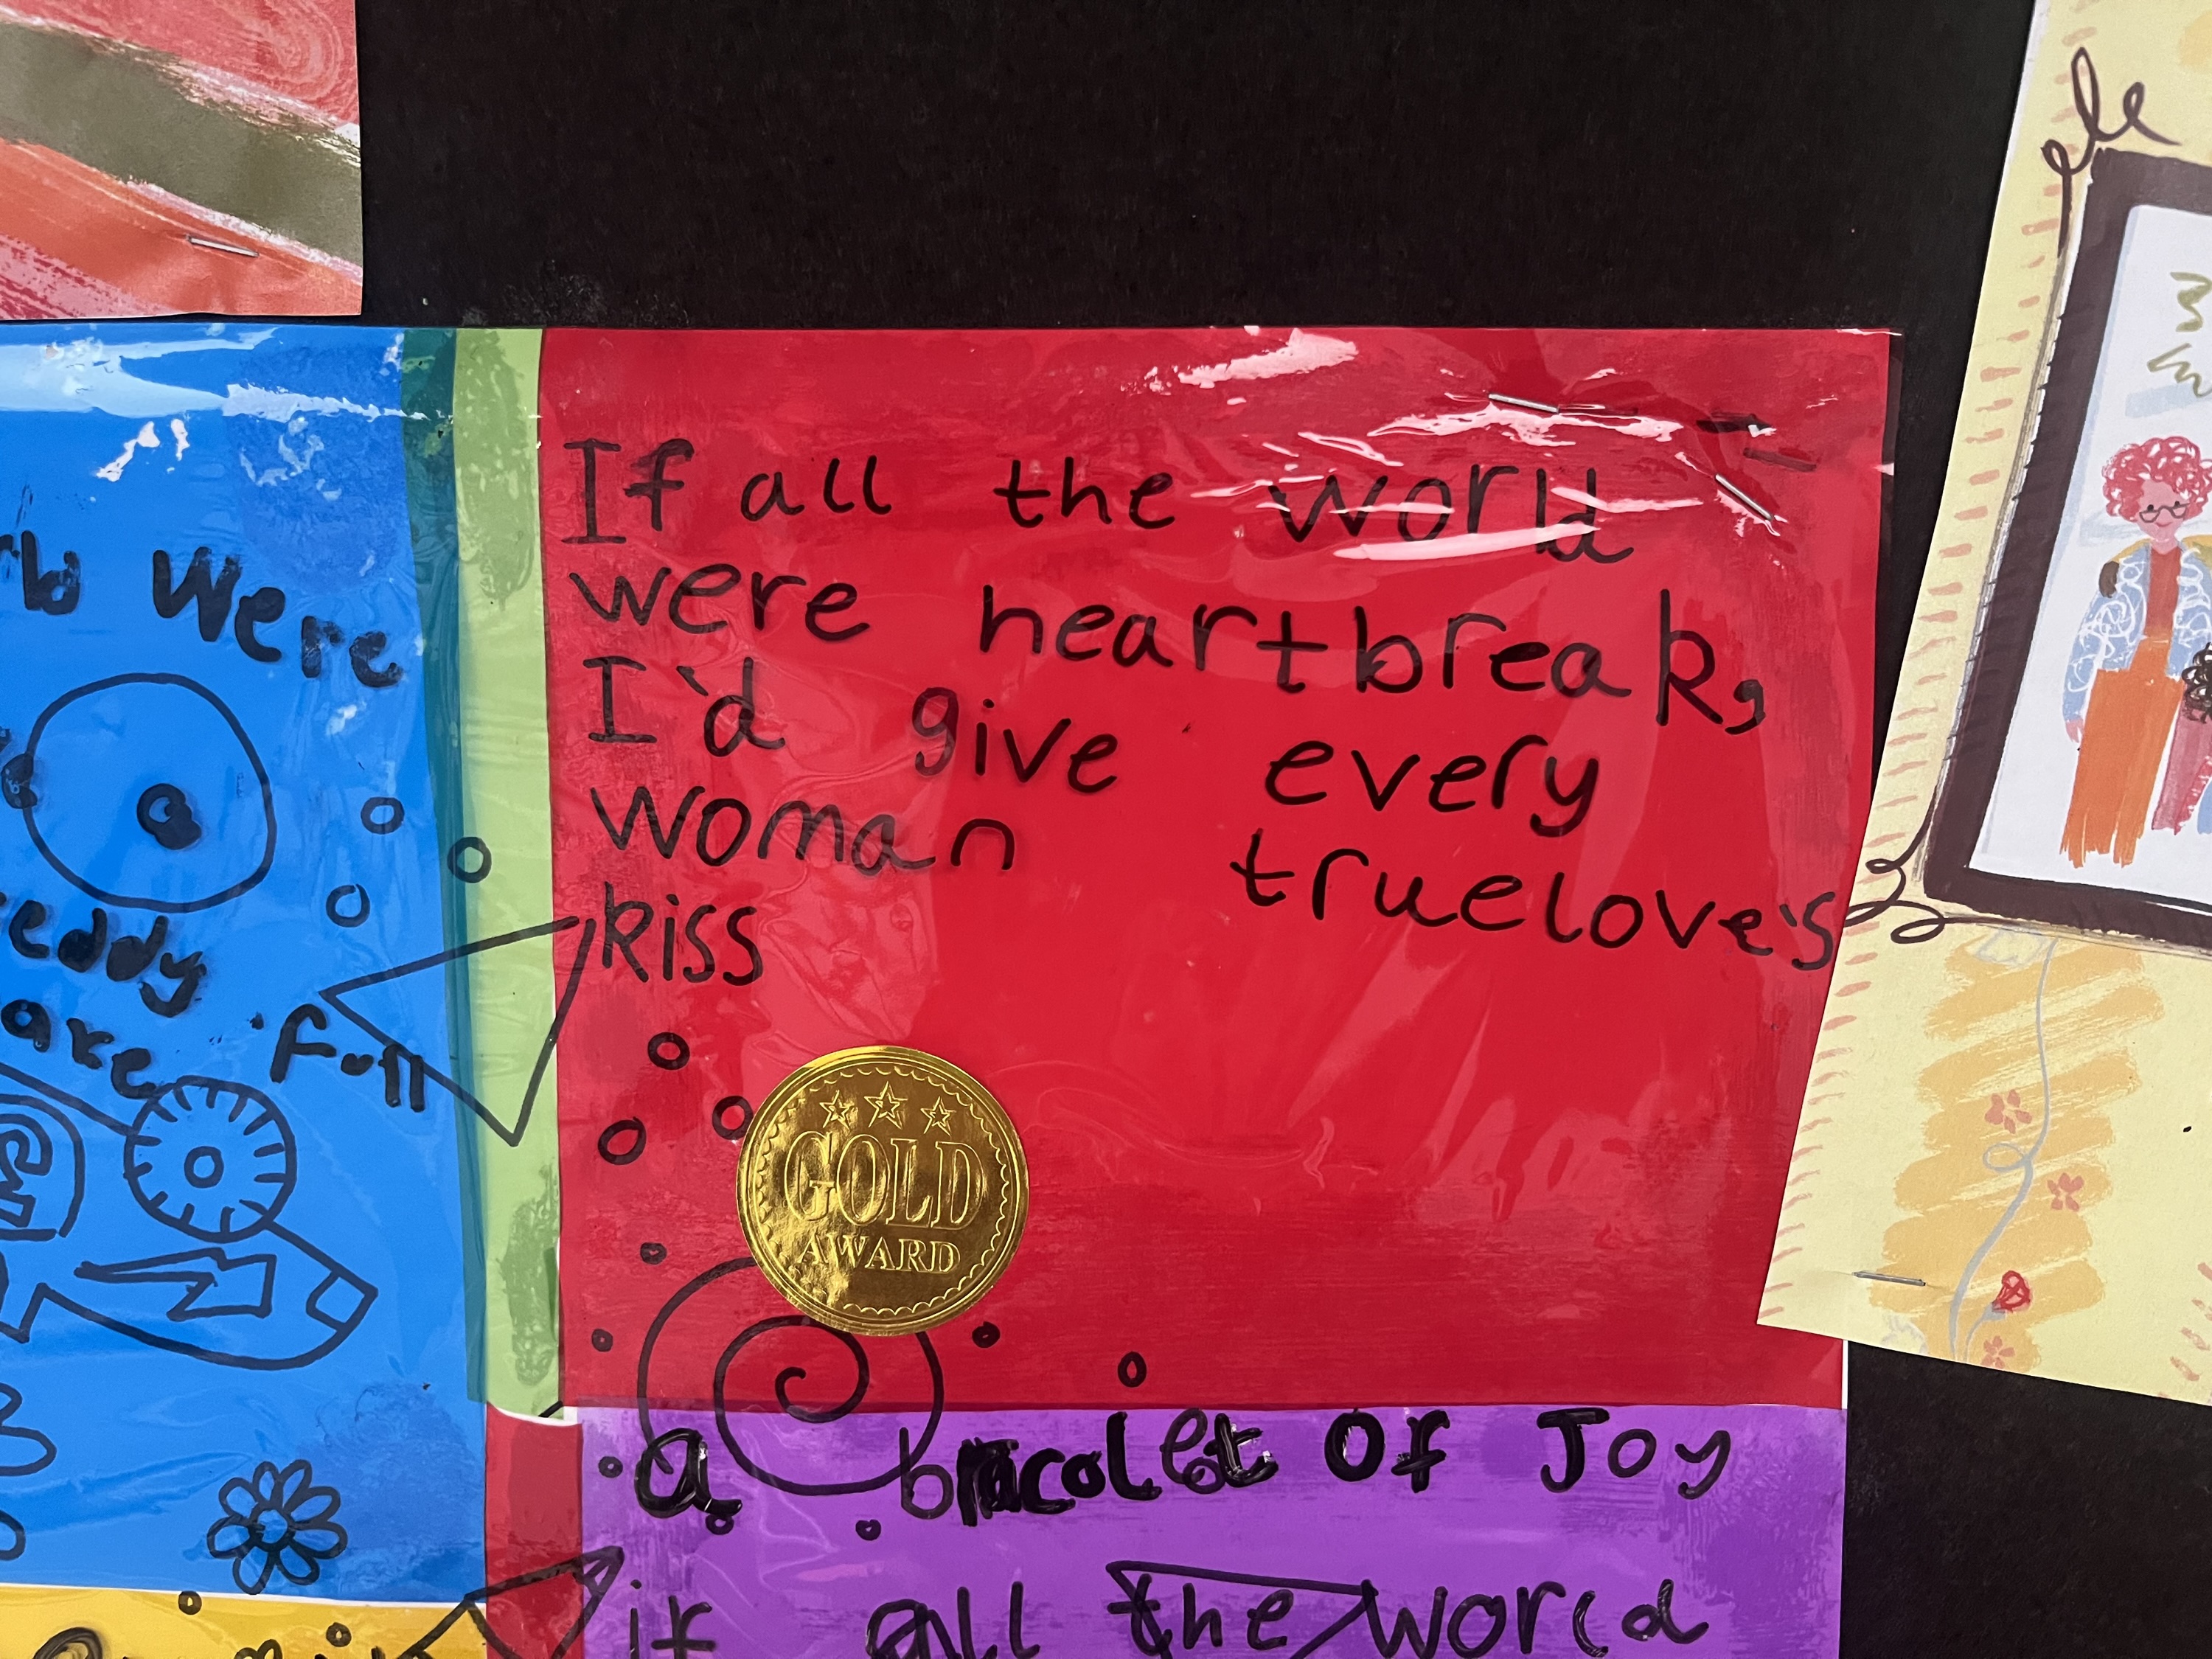 If all the world
were heartbreak,
I'd give every
woman truelove's
kiss
GOLD
AWARD
a bracolet Of Joy
if all the world
were
eddy
fall